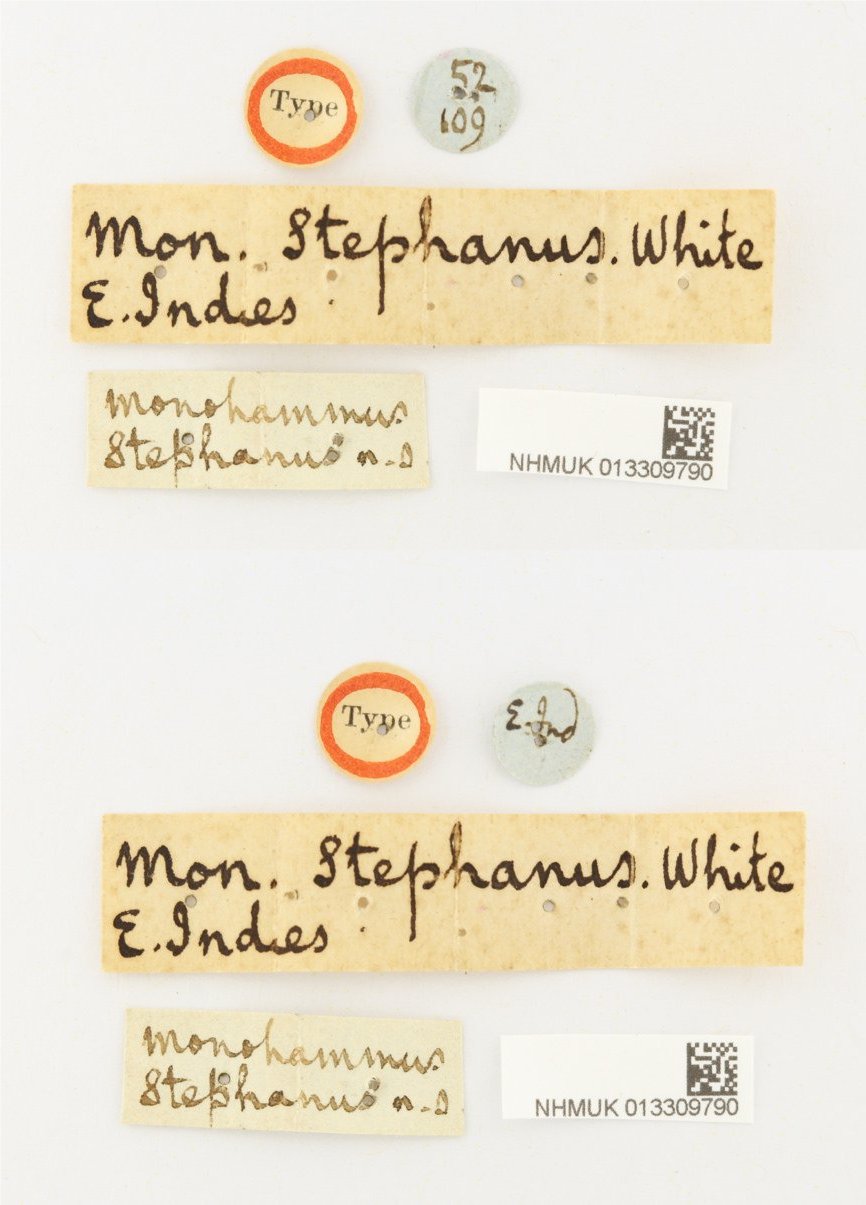 Type
52
109
Mon. Stephanus. White
E. Indies
Monohammus
Stephanus n.s
NHMUK 013309790
Type
E. Ind
Mon. Stephanus. White
E. Indies
Monohammus
Stephanus n.s
NHMUK 013309790